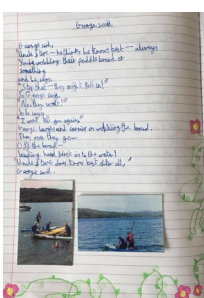 George said
George said,
"Uncle Dave – he thinks he knows best – always
You're wobbling their paddle board or
something
and he says,
"Stop that – they might fall in!"
So George says,
"No they won't!"
So he says
"I won't tell you again!"
George laughs and carries on wobbling the board.
Then over they go –
Off the board –
Landing head first in to the water!
Uncle Dave does know best after all,"
George said.